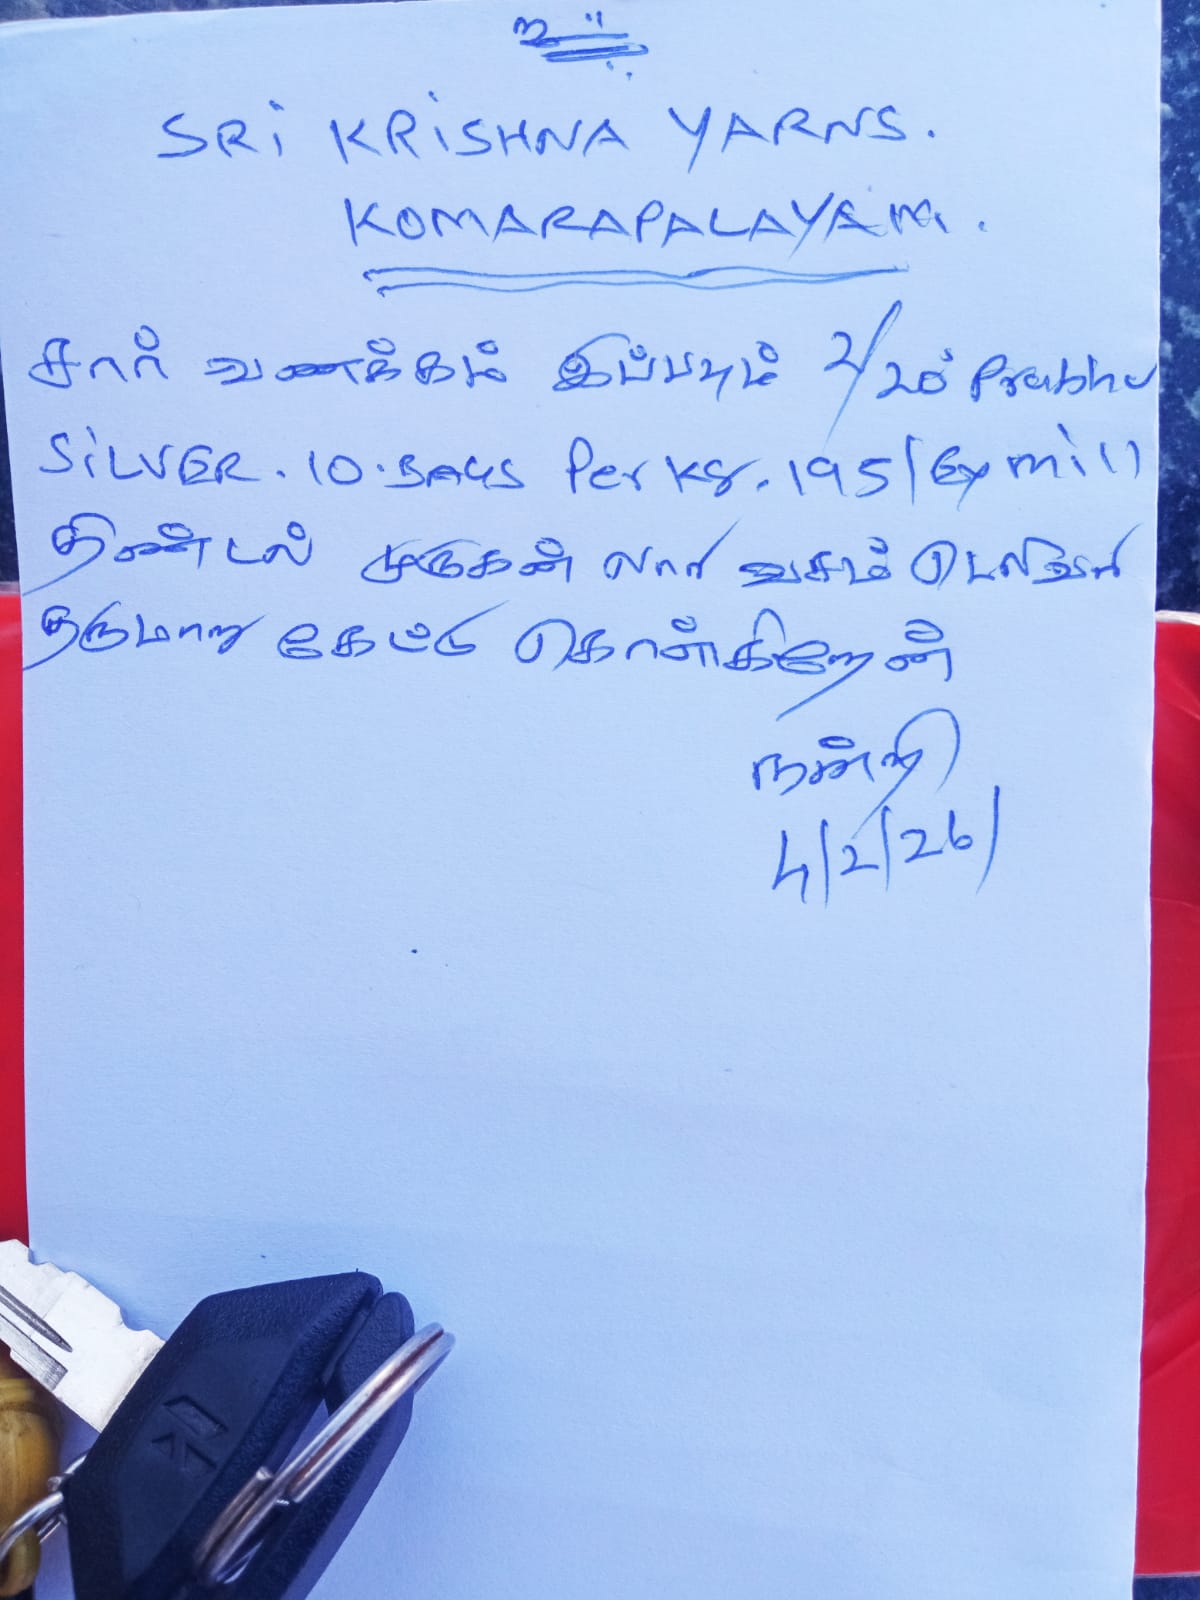 உ
SRi KRiSHNA YARNS.
KOMARAPALAYAM.
சார் வணக்கம் இப்பவும் 2/20s Prabhu
SiLVER. 10. BAGS Per KG. 195/Ex mill
திண்டல் முருகன் லாரி வசம் டெலிவரி
தருமாறு கேட்டு கொள்கிறேன்
நன்றி
4/2/26/